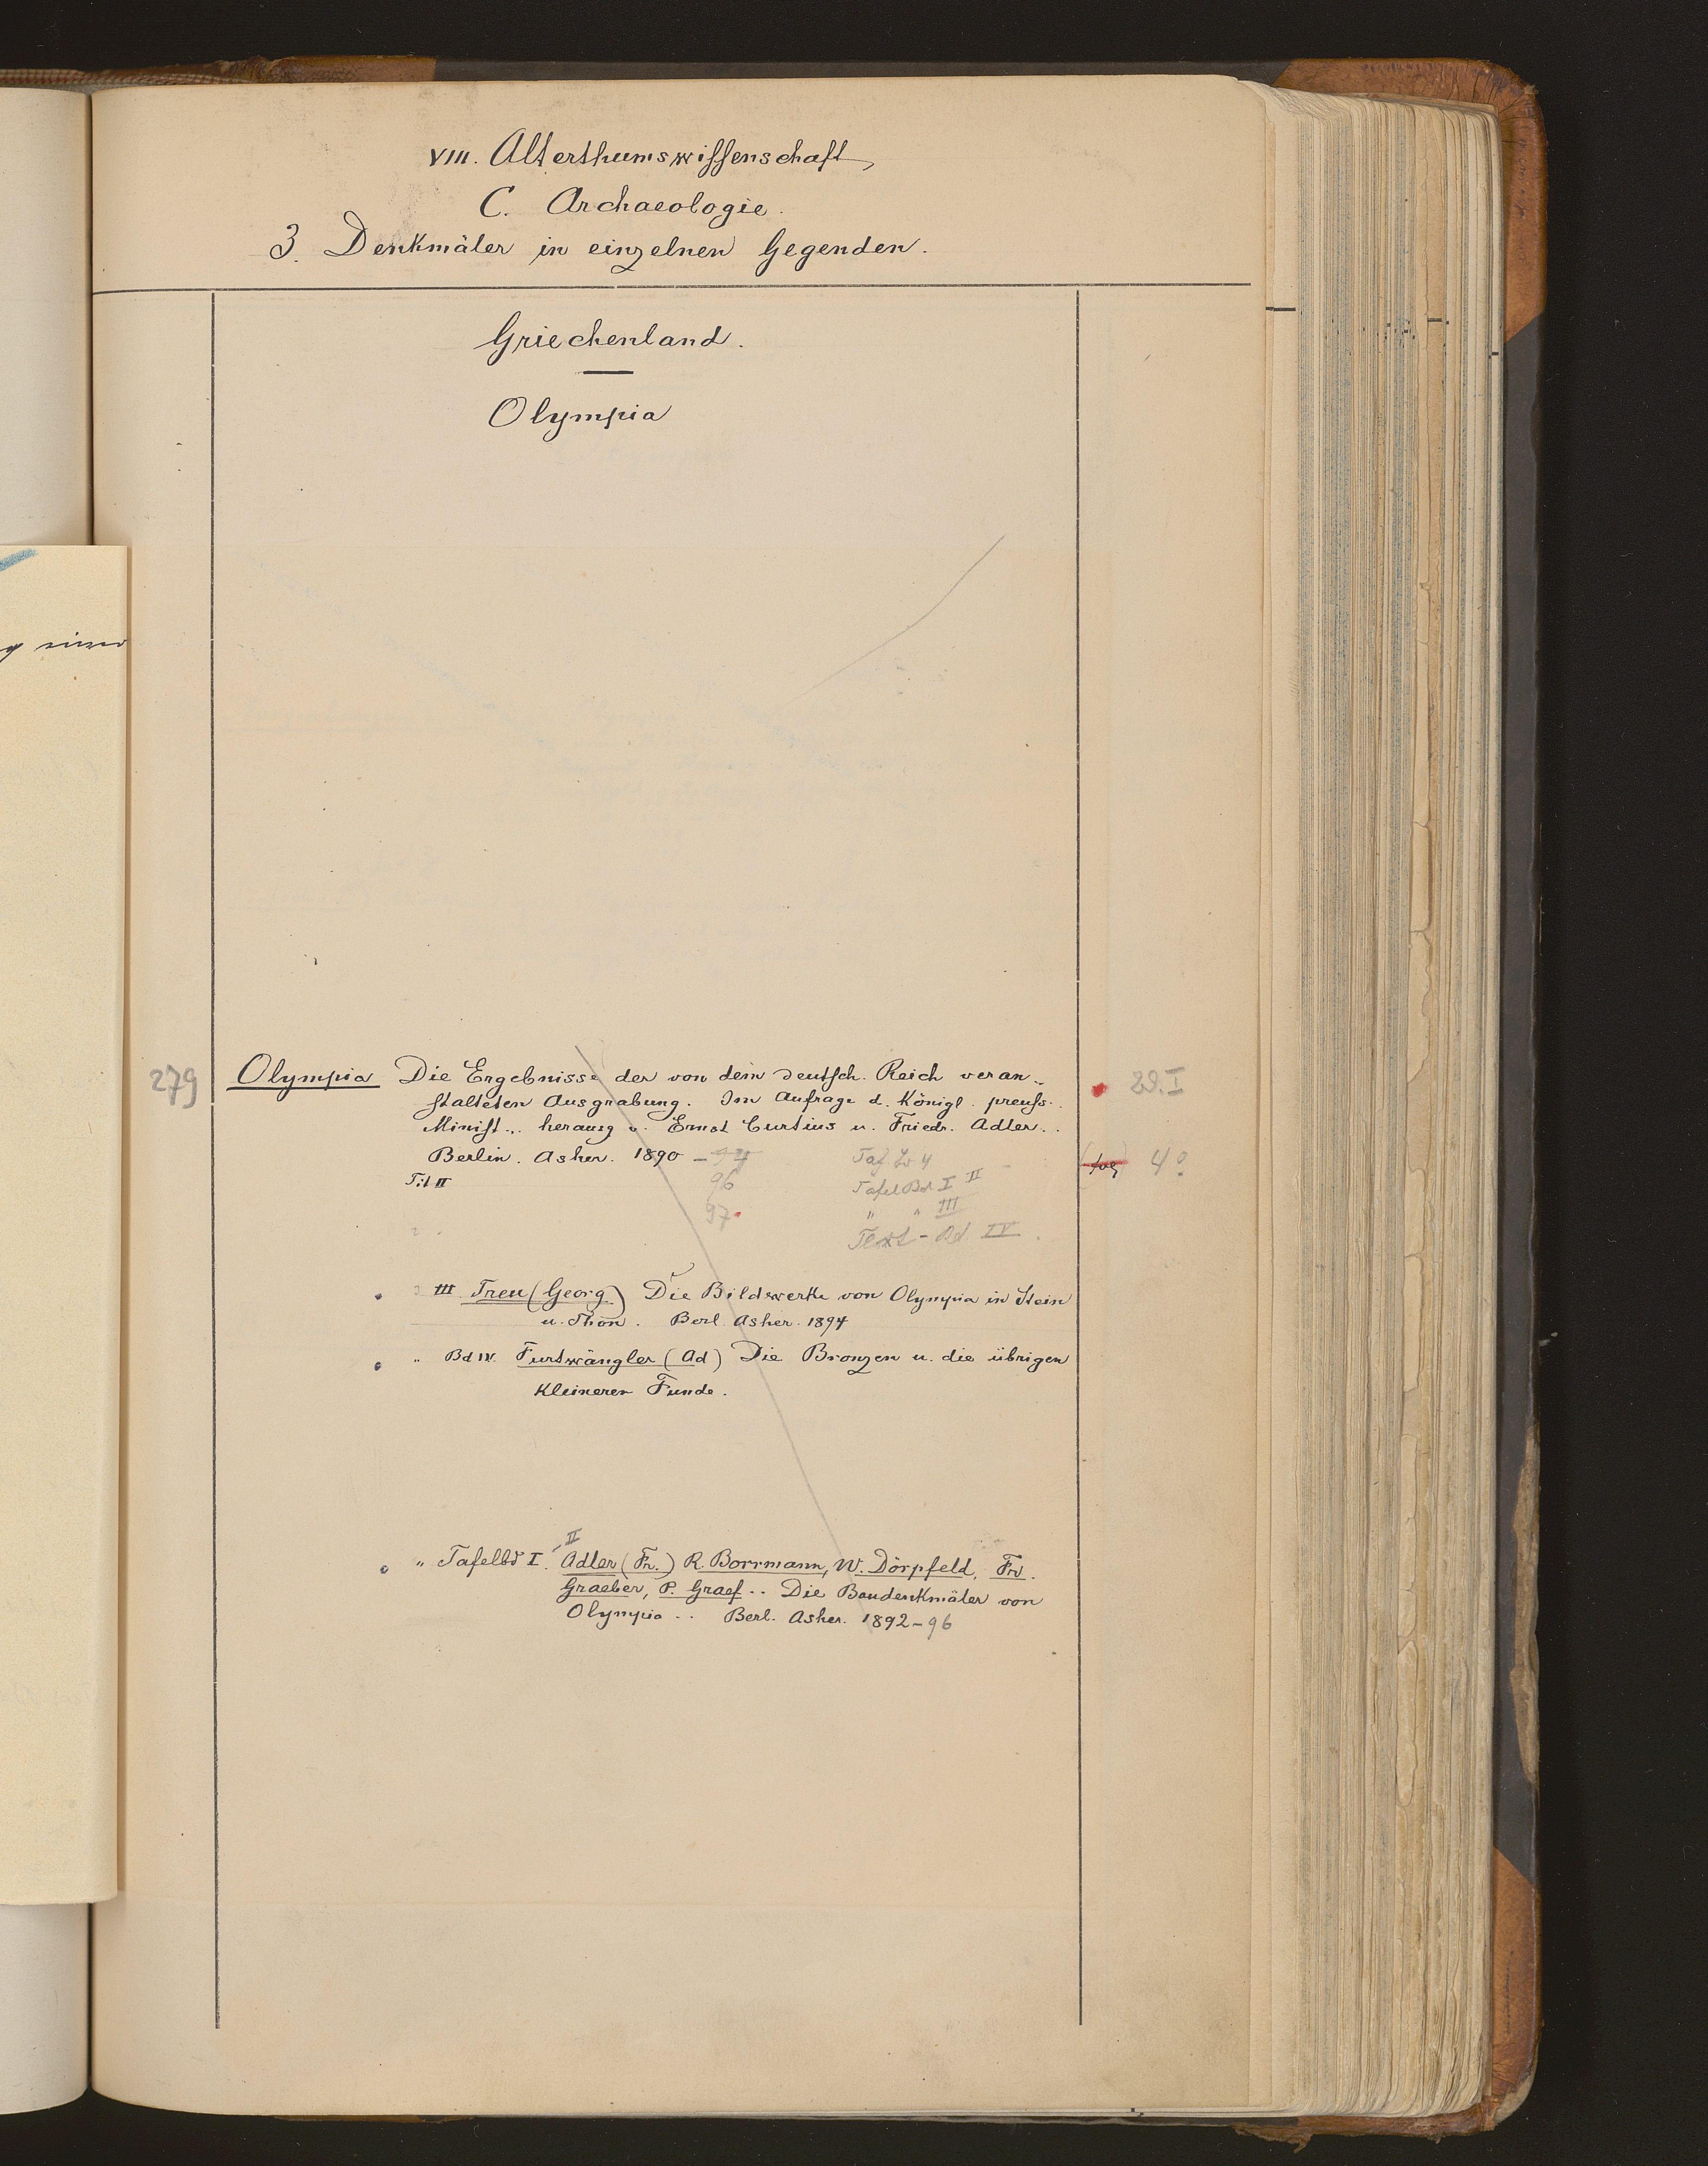 VIII. Alterthumswissenschaft
C. Archaeologie.
3. Denkmäler in einzelnen Gegenden.
Griechenland.
Olympia
279 Olympia Die Ergebnisse der von dem deutsch. Reich veran-
stalteten Ausgrabung. Im Aufrage d. Königl. preuss.
Minist... herausg v. Ernst Curtius u. Friedr. Adler..
Berlin. Asher. 1890 –
4º
96 Tafel Bd I II
97 " " III
Text - Bd IV.
III Treu (Georg) Die Bildwerke von Olympia in Stein
u. Thon. Berl. Asher. 1894
" Bd IV. Furtwängler (Ad) Die Bronzen u. die übrigen
kleineren Funde.
" Tafelbd I. -II Adler (Fr.) R. Borrmann, W. Dörpfeld, Fr.
Graeber, P. Graef .. Die Baudenkmäler von
Olympia .. Berl. Asher. 1892-96